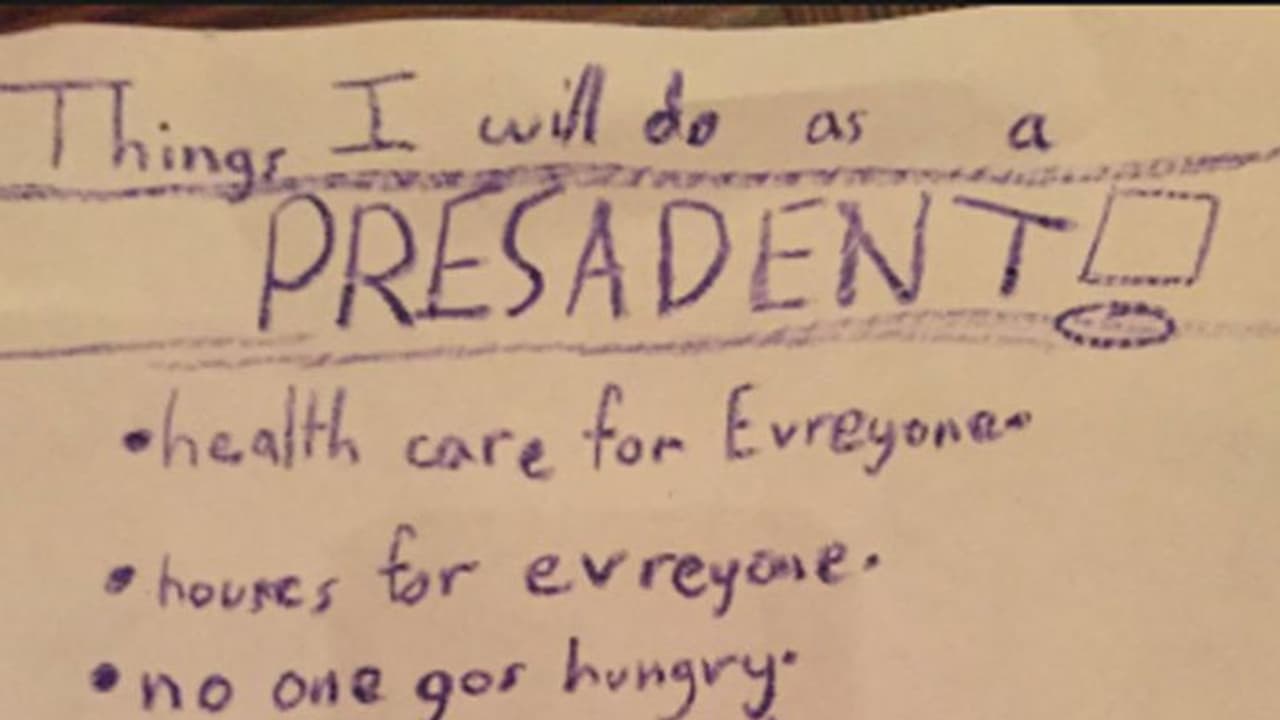 Things I will do as a
PRESADENT
•health care for Evreyone.
•houses for evreyone.
•no one gos hungry.